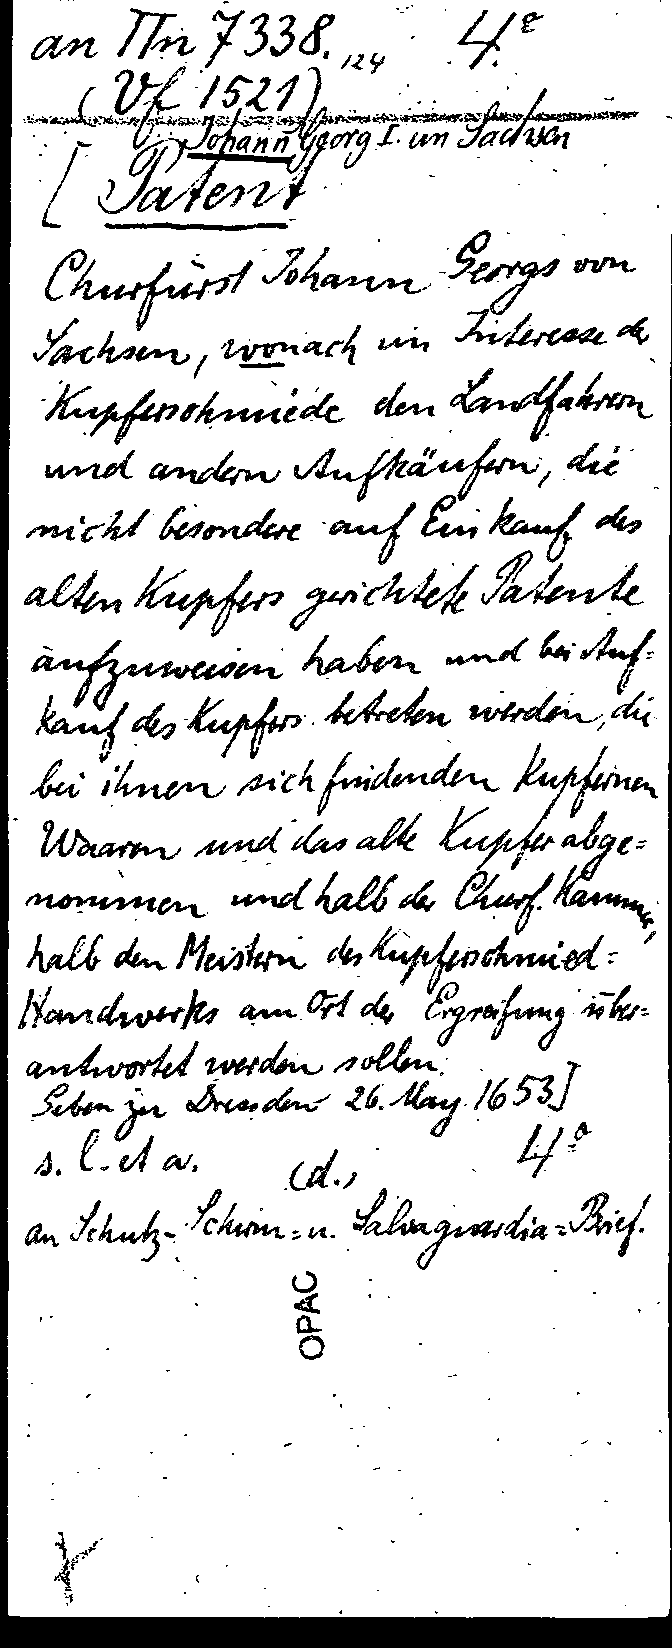 an IIn 7338. 124 4.º
(Vf 1521)
Johann Georg I. von Sachsen
[ Patent
Churfürst Johann Georgs von
Sachsen, wonach im Interesse der
Kupferschmiede den Landfahrern
und andern Aufkäufern, die
nicht besondere auf Einkauf des
alten Kupfers gerichtete Patente
aufzuweisen haben und bei Auf=
kauf des Kupfers betreten werden, die
bei ihnen sich findenden Kupfernen
Waaren und das alte Kupfer abge=
nommen und halb der Churf. Kammer,
halb den Meistern des Kupferschmied=
Handwerks am Ort der Ergreifung über=
antwortet werden sollen.
Geben zu Dressden 26. May 1653]
s. l. et a. 4º
(d.,
an Schutz-, Schirm= u. Salvaguardia=Brief.
OPAC